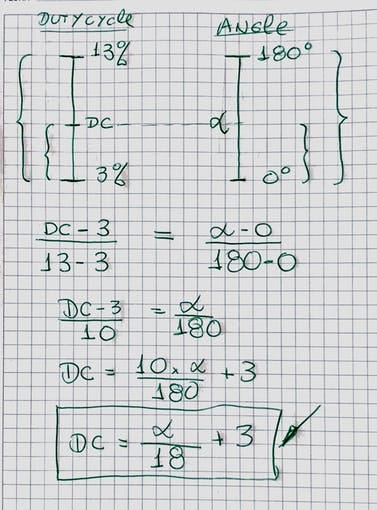 DUTYCYCLE ANGLE
13% 180°
DC α
3% 0°
DC - 3 / 13 - 3 = α - 0 / 180 - 0
DC - 3 / 10 = α / 180
DC = 10 × α / 180 + 3
DC = α / 18 + 3